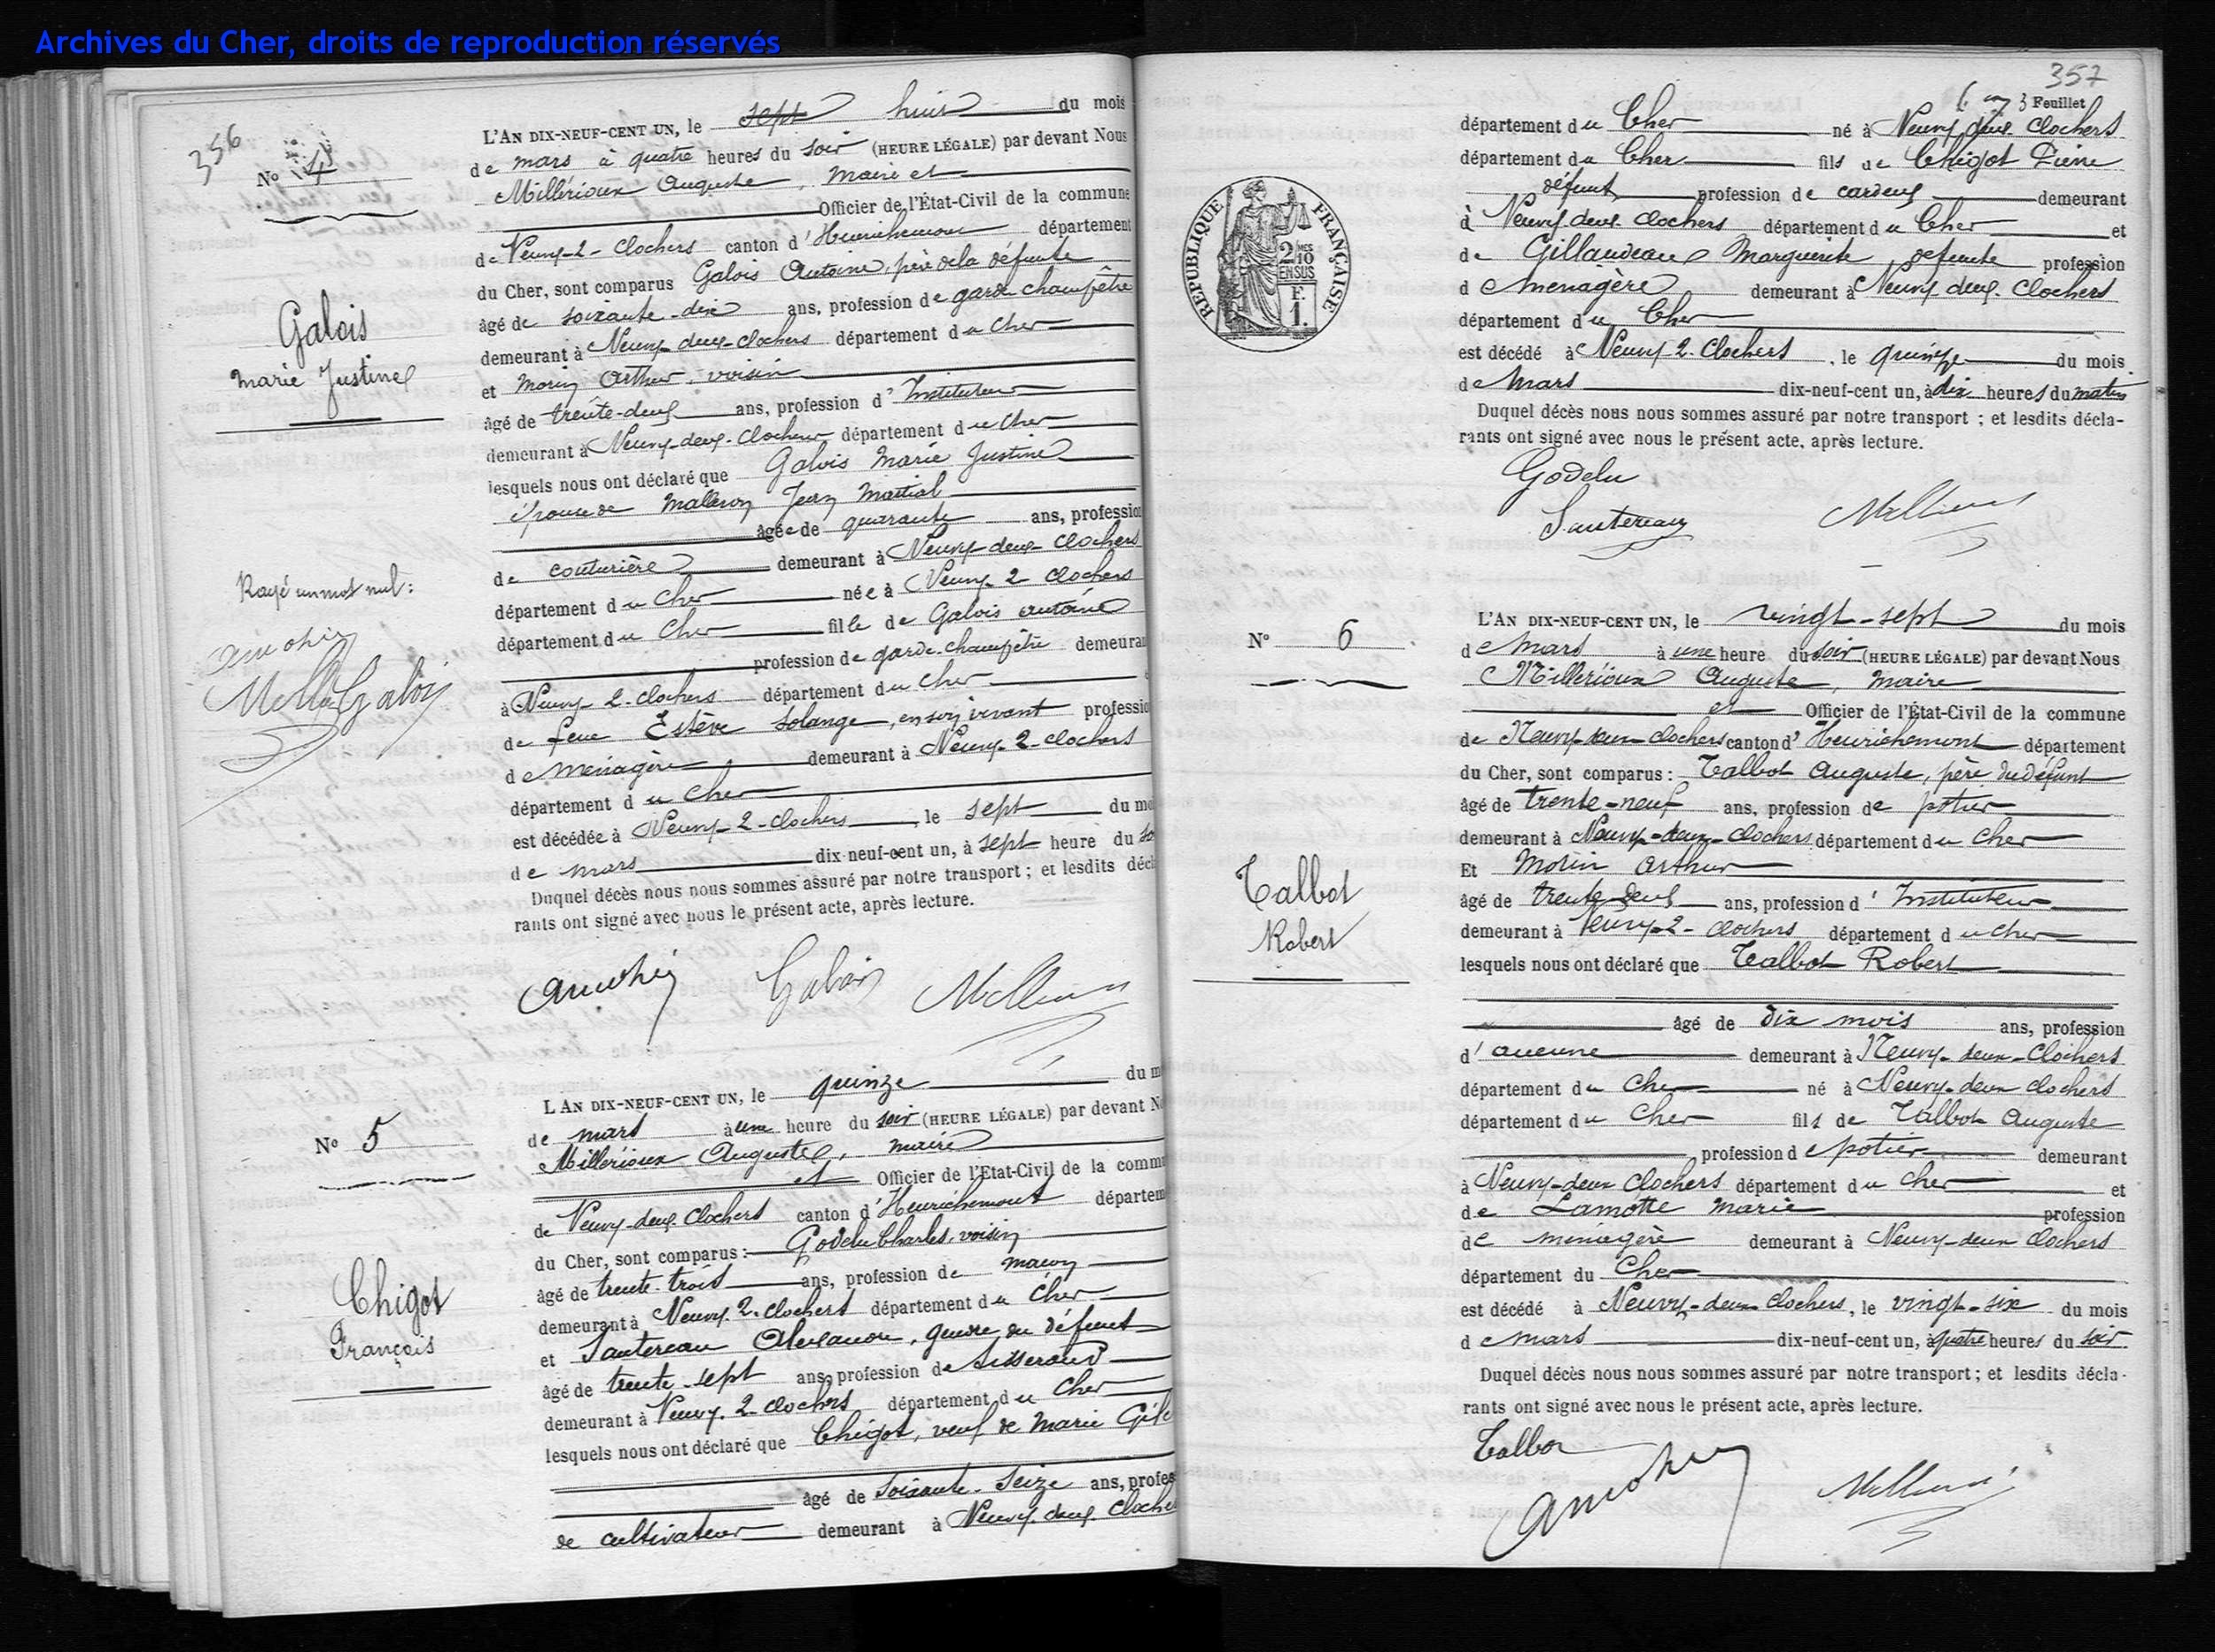 Archives du Cher, droits de reproduction réservés
356
No 4
Galois
Marie Justine
Rayé un mot nul:
L'AN DIX-NEUF-CENT UN, le sept huit du mois
de mars à quatre heures du soir (HEURE LÉGALE) par devant Nous
Millérioux Auguste, maire et
Officier de l'État-Civil de la commune
de Neuvy-2-Clochers canton d'Henrichemont département
du Cher, sont comparus Galois Antoine, père de la défunte
âgé de soixante-dix ans, profession de garde champêtre
demeurant à Neuvy-deux-clochers département du Cher
et Morin Arthur, voisin
âgé de trente-deux ans, profession d'Instituteur
demeurant à Neuvy-deux-Clochers département du Cher
lesquels nous ont déclaré que Galois Marie Justine
épouse de Malleron Jean Martial
âgée de quarante ans, profession
de couturière demeurant à Neuvy-deux-Clochers
département du Cher née à Neuvy-2 Clochers
département du Cher fille de Galois Antoine
profession de garde-champêtre demeuran
à Neuvy-2-Clochers département du Cher
de feue Estève Solange, en son vivant professio
de Ménagère demeurant à Neuvy-2-Clochers
département du Cher
est décédée à Neuvy-2-Clochers, le sept du mo
de mars dix-neuf-cent un, à sept heure du so
Duquel décès nous nous sommes assuré par notre transport ; et lesdits décl
rants ont signé avec nous le présent acte, après lecture.
Galois
No 5
Chigot
François
L'AN DIX-NEUF-CENT UN, le quinze du m
de mars à une heure du soir (HEURE LÉGALE) par devant No
Millérioux Auguste, maire
et Officier de l'État-Civil de la comm
de Neuvy-deux Clochers canton d'Henrichemont départem
du Cher, sont comparus : Godelu Charles, voisin
âgé de trente-trois ans, profession de maçon
demeurant à Neuvy-2-Clochers département du Cher
et Sautereau Alexandre, gendre du défunt
âgé de trente-sept ans, profession de tisserand
demeurant à Neuvy-2-Clochers département du Cher
lesquels nous ont déclaré que Chigot, veuf de Marie Gil
âgé de soixante-seize ans, profes
de cultivateur demeurant à Neuvy-deux Cloche
357
3 Feuillet
département du Cher né à Neuvy deux Clochers
département du Cher fils de Chigot Pierre
défunt profession de cardeur demeurant
à Neuvy deux Clochers département du Cher et
de Gillaudeau Marguerite défunte profession
de Ménagère demeurant à Neuvy deux Clochers
département du Cher
est décédé à Neuvy 2 Clochers, le quinze du mois
de Mars dix-neuf-cent un, à dix heures du matin
Duquel décès nous nous sommes assuré par notre transport ; et lesdits décla-
rants ont signé avec nous le présent acte, après lecture.
Godelu
Sautereau
RÉPUBLIQUE FRANÇAISE
2 MES 10
EN SUS
F.
1.
No 6
Talbot
Robert
L'AN DIX-NEUF-CENT UN, le vingt-sept du mois
de Mars à une heure du soir (HEURE LÉGALE) par devant Nous
Millérioux Auguste, maire
et Officier de l'État-Civil de la commune
de Neuvy-deux-Clochers canton d'Henrichemont département
du Cher, sont comparus : Talbot Auguste, père du défunt
âgé de trente-neuf ans, profession de potier
demeurant à Neuvy-deux-Clochers département du Cher
Et Morin Arthur
âgé de trente-deux ans, profession d'Instituteur
demeurant à Neuvy-2-Clochers département du Cher
lesquels nous ont déclaré que Talbot Robert
âgé de dix mois ans, profession
d'aucune demeurant à Neuvy-deux-Clochers
département du Cher né à Neuvy-deux Clochers
département du Cher fils de Talbot Auguste
profession de potier demeurant
à Neuvy-deux Clochers département du Cher et
de Lamotte Marie profession
de ménagère demeurant à Neuvy-deux Clochers
département du Cher
est décédé à Neuvy-deux Clochers, le vingt-six du mois
de mars dix-neuf-cent un, à quatre heures du soir
Duquel décès nous nous sommes assuré par notre transport ; et lesdits décla-
rants ont signé avec nous le présent acte, après lecture.
Talbot